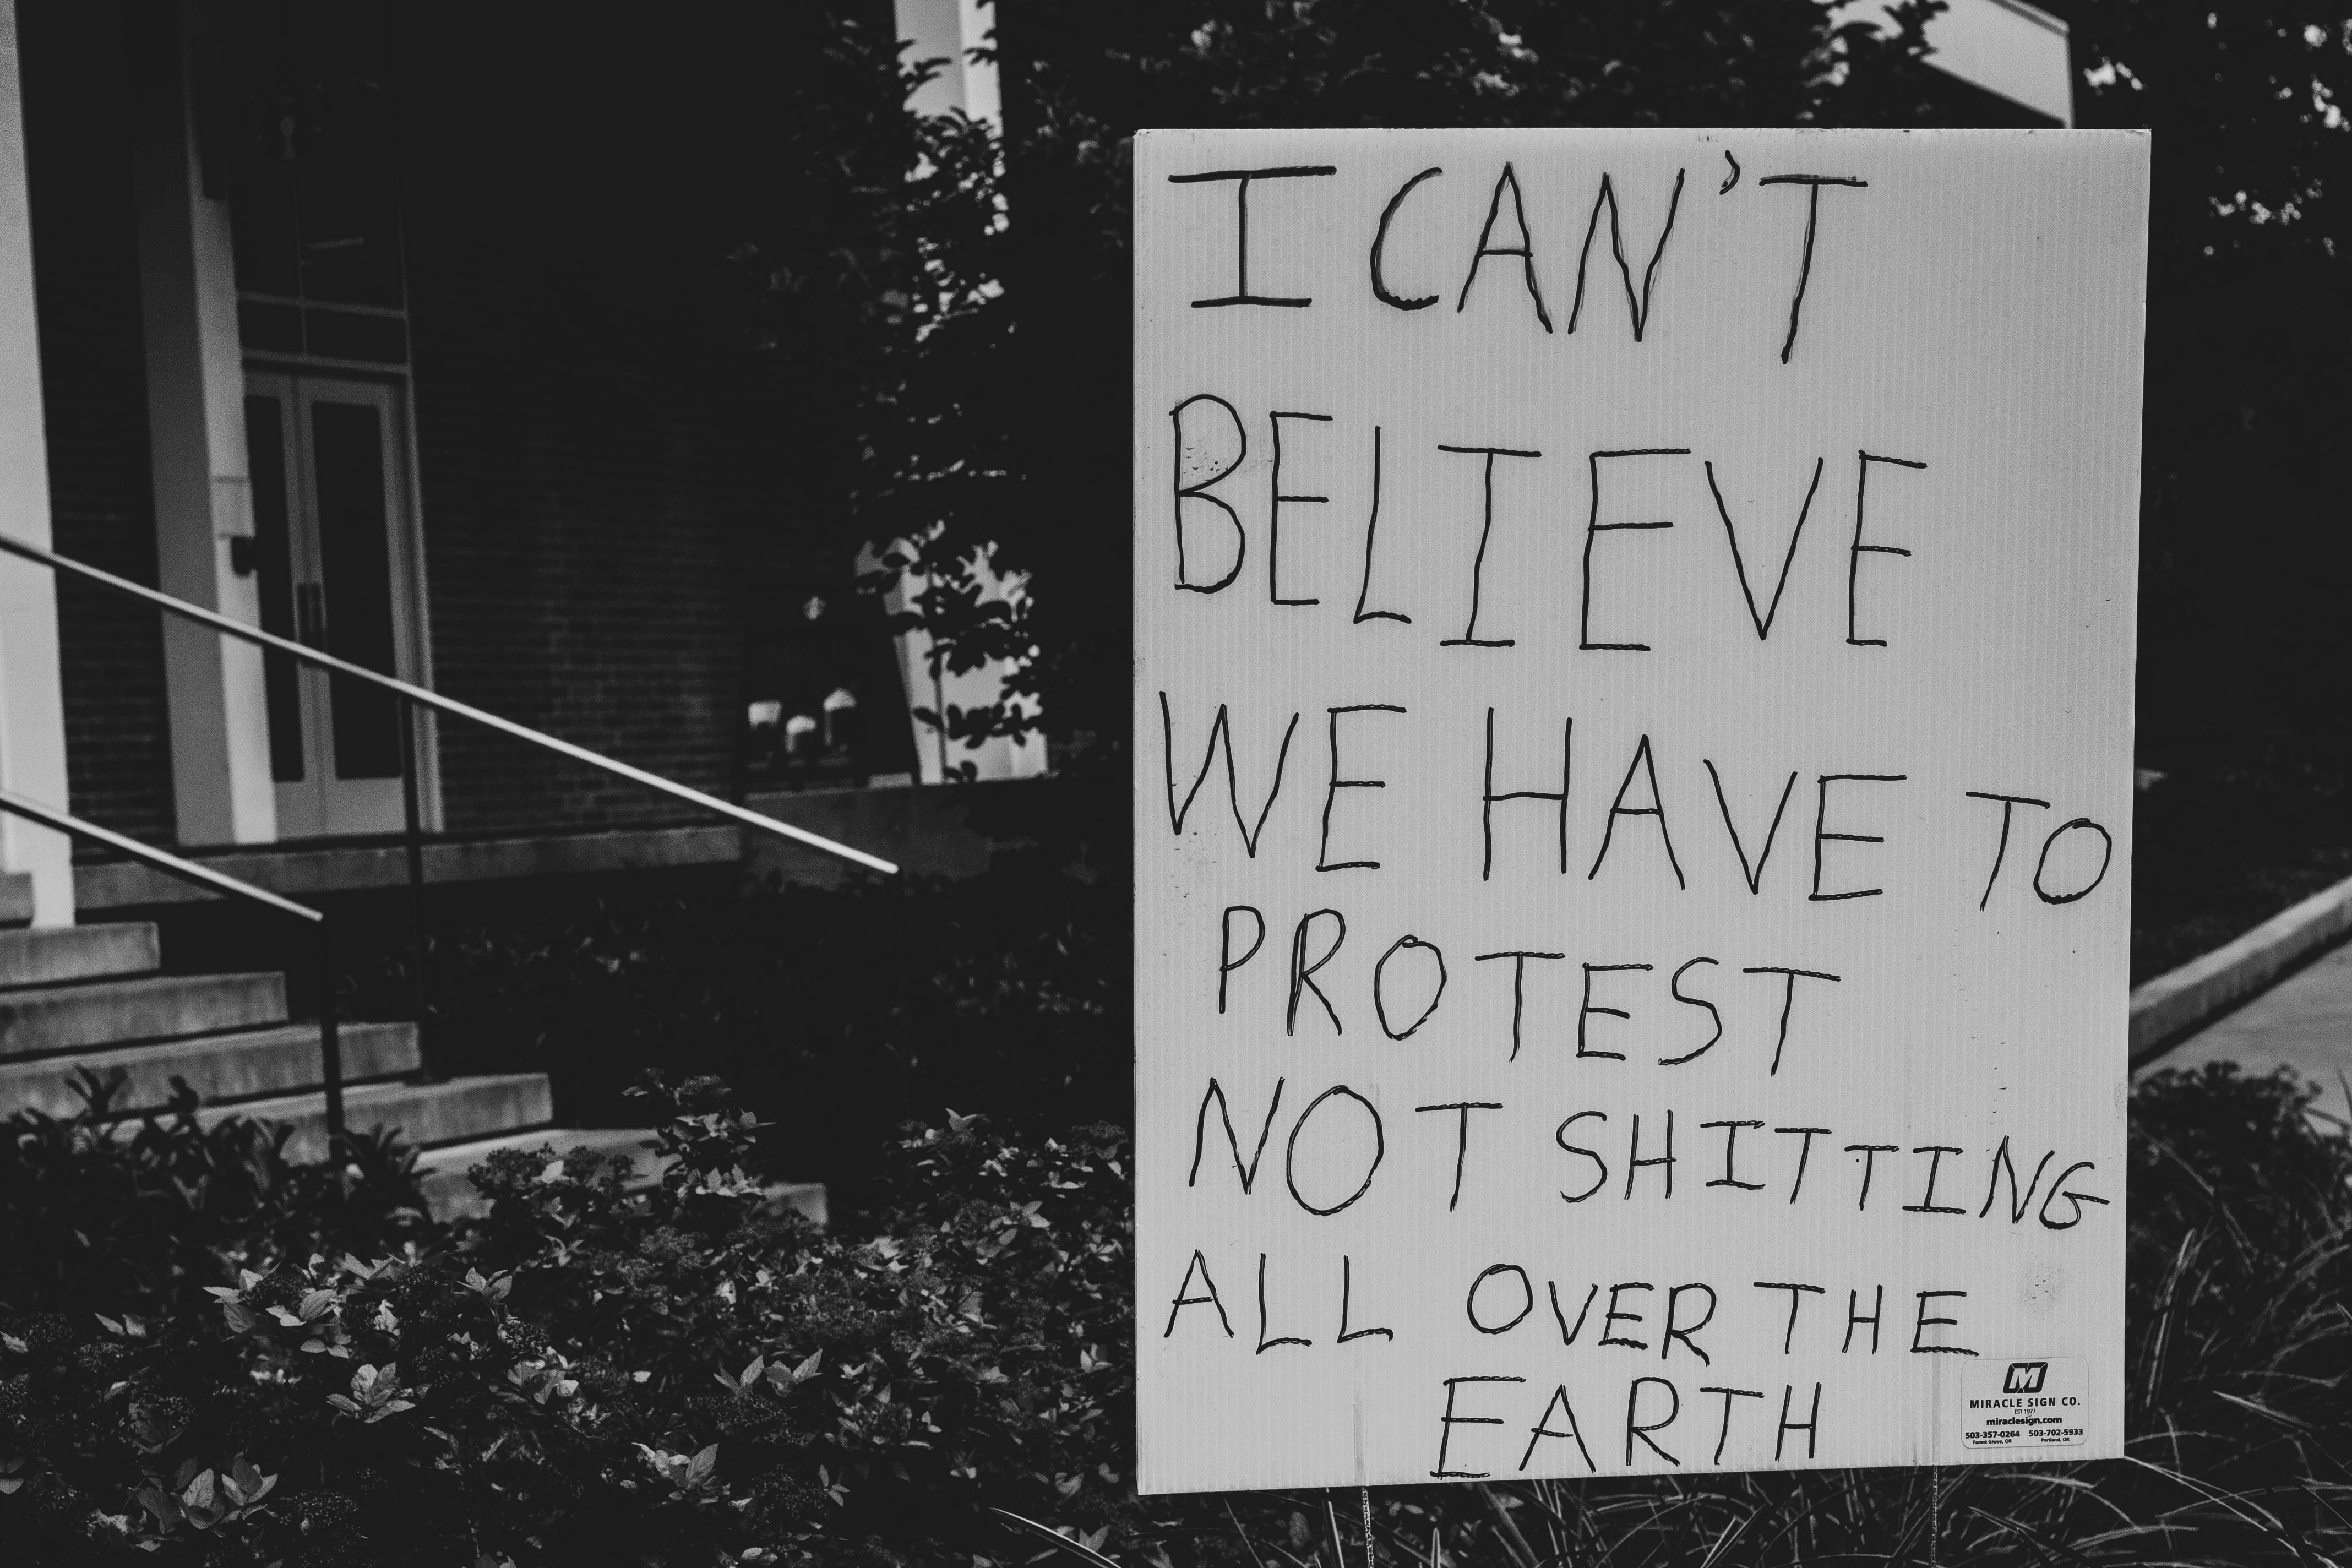 I CAN'T
BELIEVE
WE HAVE TO
PROTEST
NOT SHITTING
ALL OVER THE
EARTH
M
MIRACLE SIGN CO.
EST 1977
miraclesign.com
503-357-0264 503-702-5933
Forest Grove, OR Portland, OR